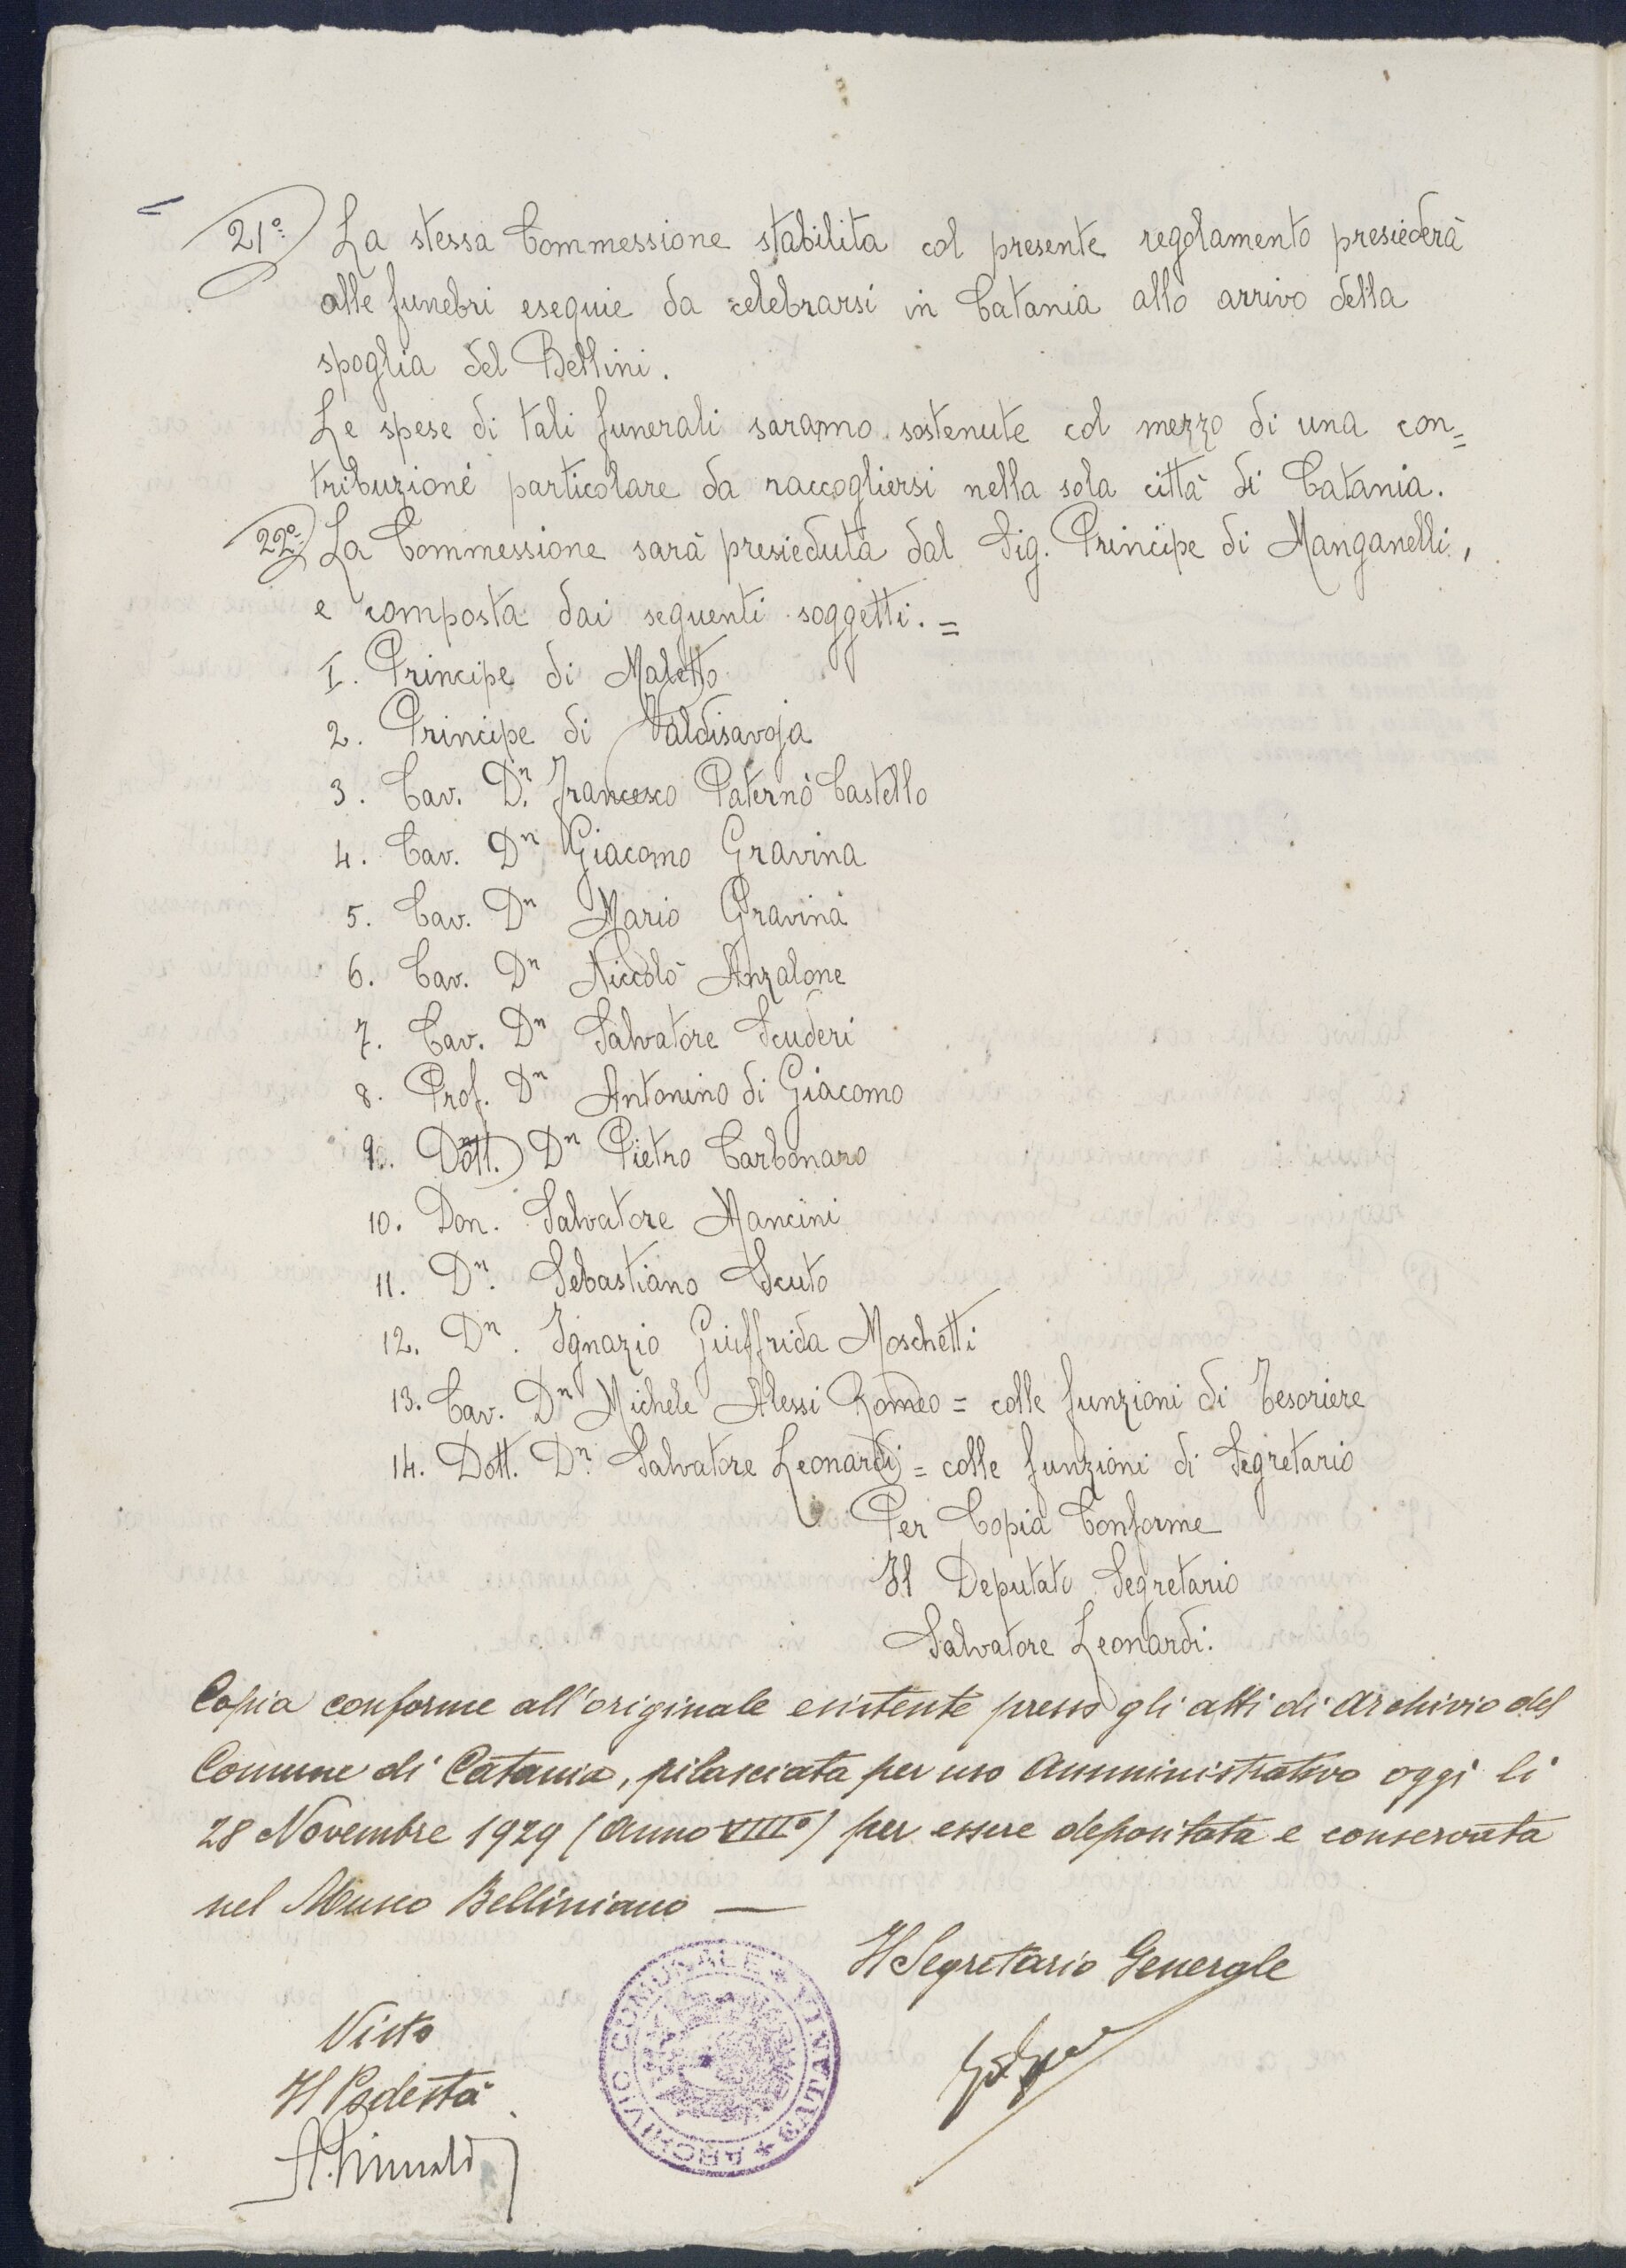 21º La stessa Commessione stabilita col presente regolamento presiederà
alle funebri esequie da celebrarsi in Catania allo arrivo della
spoglia del Bellini.
Le spese di tali funerali saranno sostenute col mezzo di una con=
tribuzione particolare da raccogliersi nella sola città di Catania.
22º La Commessione sarà presieduta dal Sig. Principe di Manganelli,
e composta dai seguenti soggetti. =
I. Principe di Maletto
2. Principe di Valdisavoja
3. Cav. Dn. Francesco Paternò Castello
4. Cav. Dn Giacomo Gravina
5. Cav. Dn Mario Gravina
6. Cav. Dn Niccolò Anzalone
7. Cav. Dn Salvatore Scuderi
8. Prof. Dn Antonino di Giacomo
9. Dott. Dn Pietro Carbonaro
10. Don. Salvatore Mancini
11. Dn. Sebastiano Scuto
12. Dn. Ignazio Giuffrida Moschetti
13. Cav. Dn Michele Alessi Romeo = colle funzioni di Tesoriere
14. Dott. Dn. Salvatore Leonardi = colle funzioni di Segretario
Per Copia Conforme
Il Deputato Segretario
Salvatore Leonardi.
Copia conforme all'originale esistente presso gli atti di Archivio del
Comune di Catania, rilasciata per uso Amministrativo oggi li
28 Novembre 1929 (Anno VIIIº) per essere depositata e conservata
nel Museo Belliniano —
Il Segretario Generale
Visto
Il Podestà
ARCHIVIO COMUNALE * CATANIA *